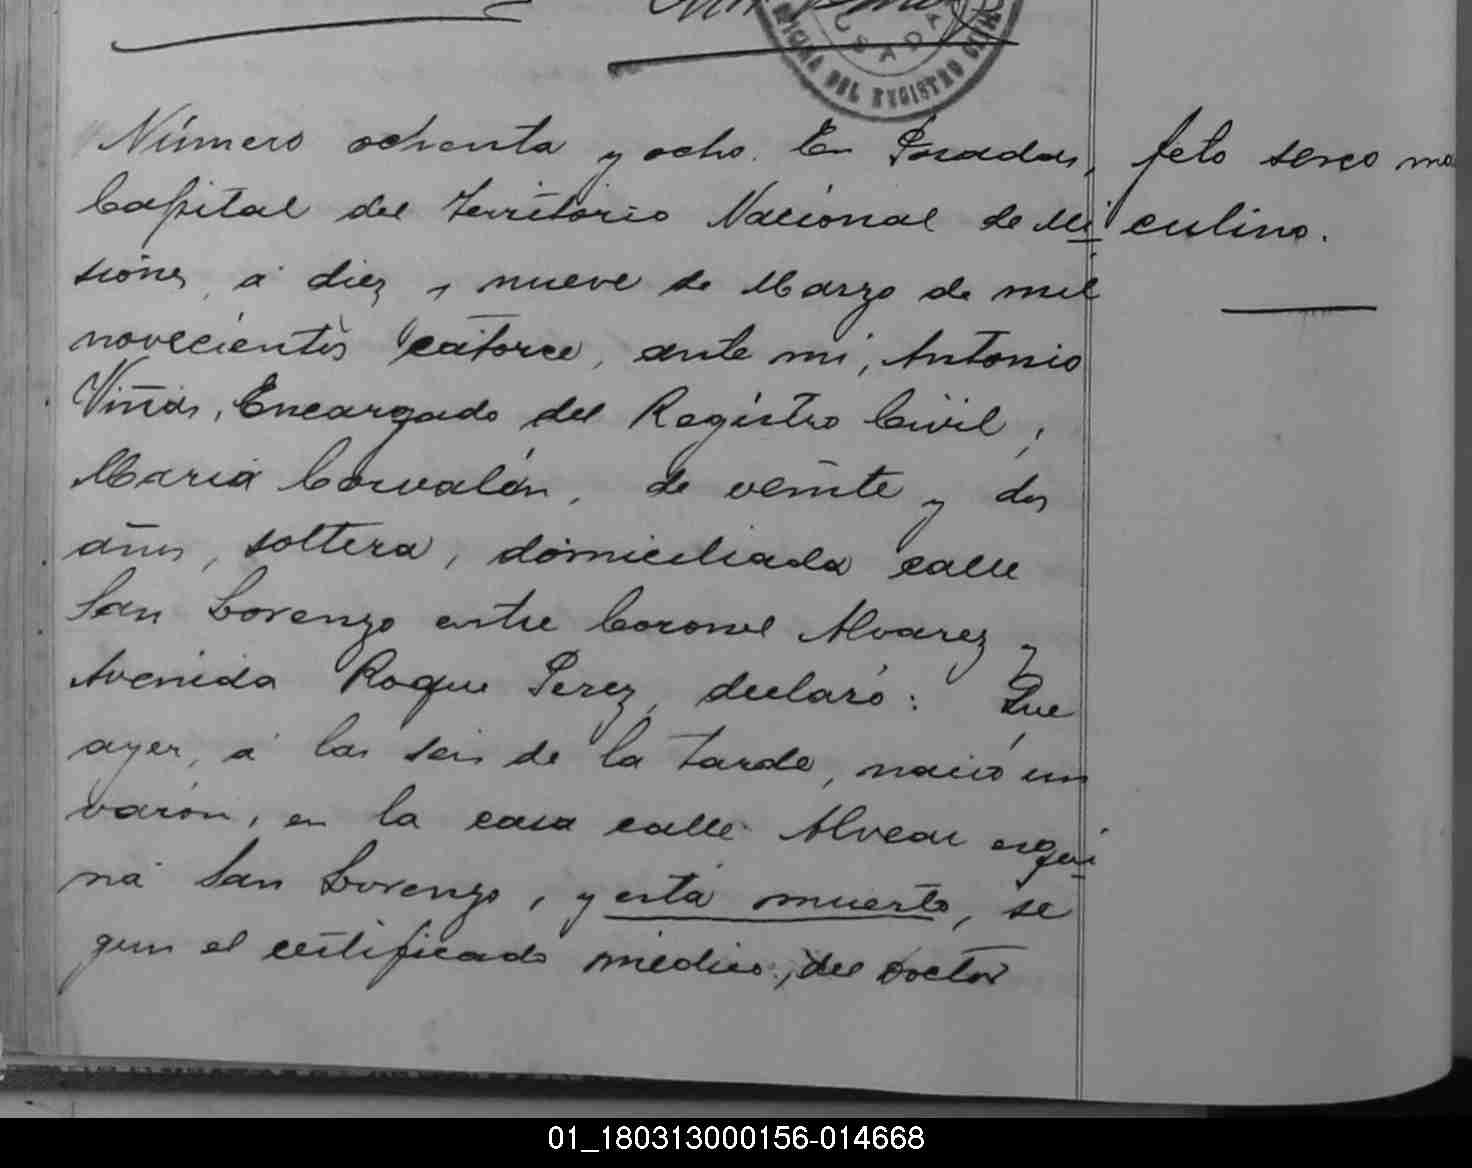 OFICINA DEL REGISTRO CIVIL
Número ochenta y ocho. En Posadas,
Capital del Territorio Nacional de Mi
siones, á diez y nueve de Marzo de mil
novecientos catorce, ante mi, Antonio
Viñas, Encargado del Registro Civil,
Maria Corvalán, de veinte y dos
años, soltera, domiciliada calle
San Lorenzo entre Coronel Alvarez y
Avenida Roque Perez, declaró: Que
ayer, á las seis de la tarde, nació un
varón, en la casa calle Alvear esqui
na San Lorenzo, y está muerto, se
gun el certificado médico, del doctor
feto sexo mas
culino.
01_180313000156-014668